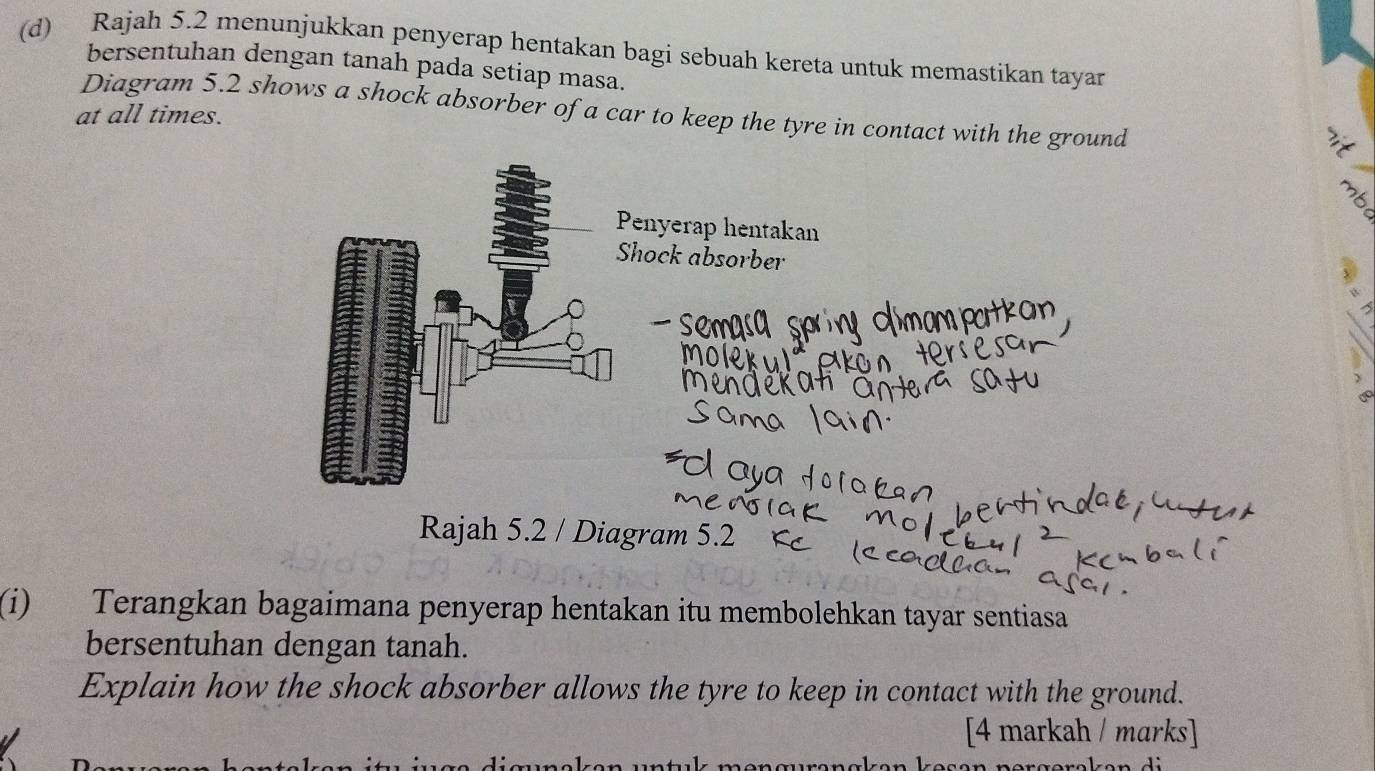 (d) Rajah 5.2 menunjukkan penyerap hentakan bagi sebuah kereta untuk memastikan tayar
bersentuhan dengan tanah pada setiap masa.
Diagram 5.2 shows a shock absorber of a car to keep the tyre in contact with the ground
at all times.
Penyerap hentakan
Shock absorber
- semasa spring dimampatkan,
molekul² akan tersesar
mendekati antara satu
sama lain.
daya tolakan bertindak, untuk
menolak molekul² kembali
ke keadaan asal.
Rajah 5.2 / Diagram 5.2
(i) Terangkan bagaimana penyerap hentakan itu membolehkan tayar sentiasa
bersentuhan dengan tanah.
Explain how the shock absorber allows the tyre to keep in contact with the ground.
[4 markah / marks]
hentakan itu juga digunakan untuk mengurangkan kesan pergerakan di